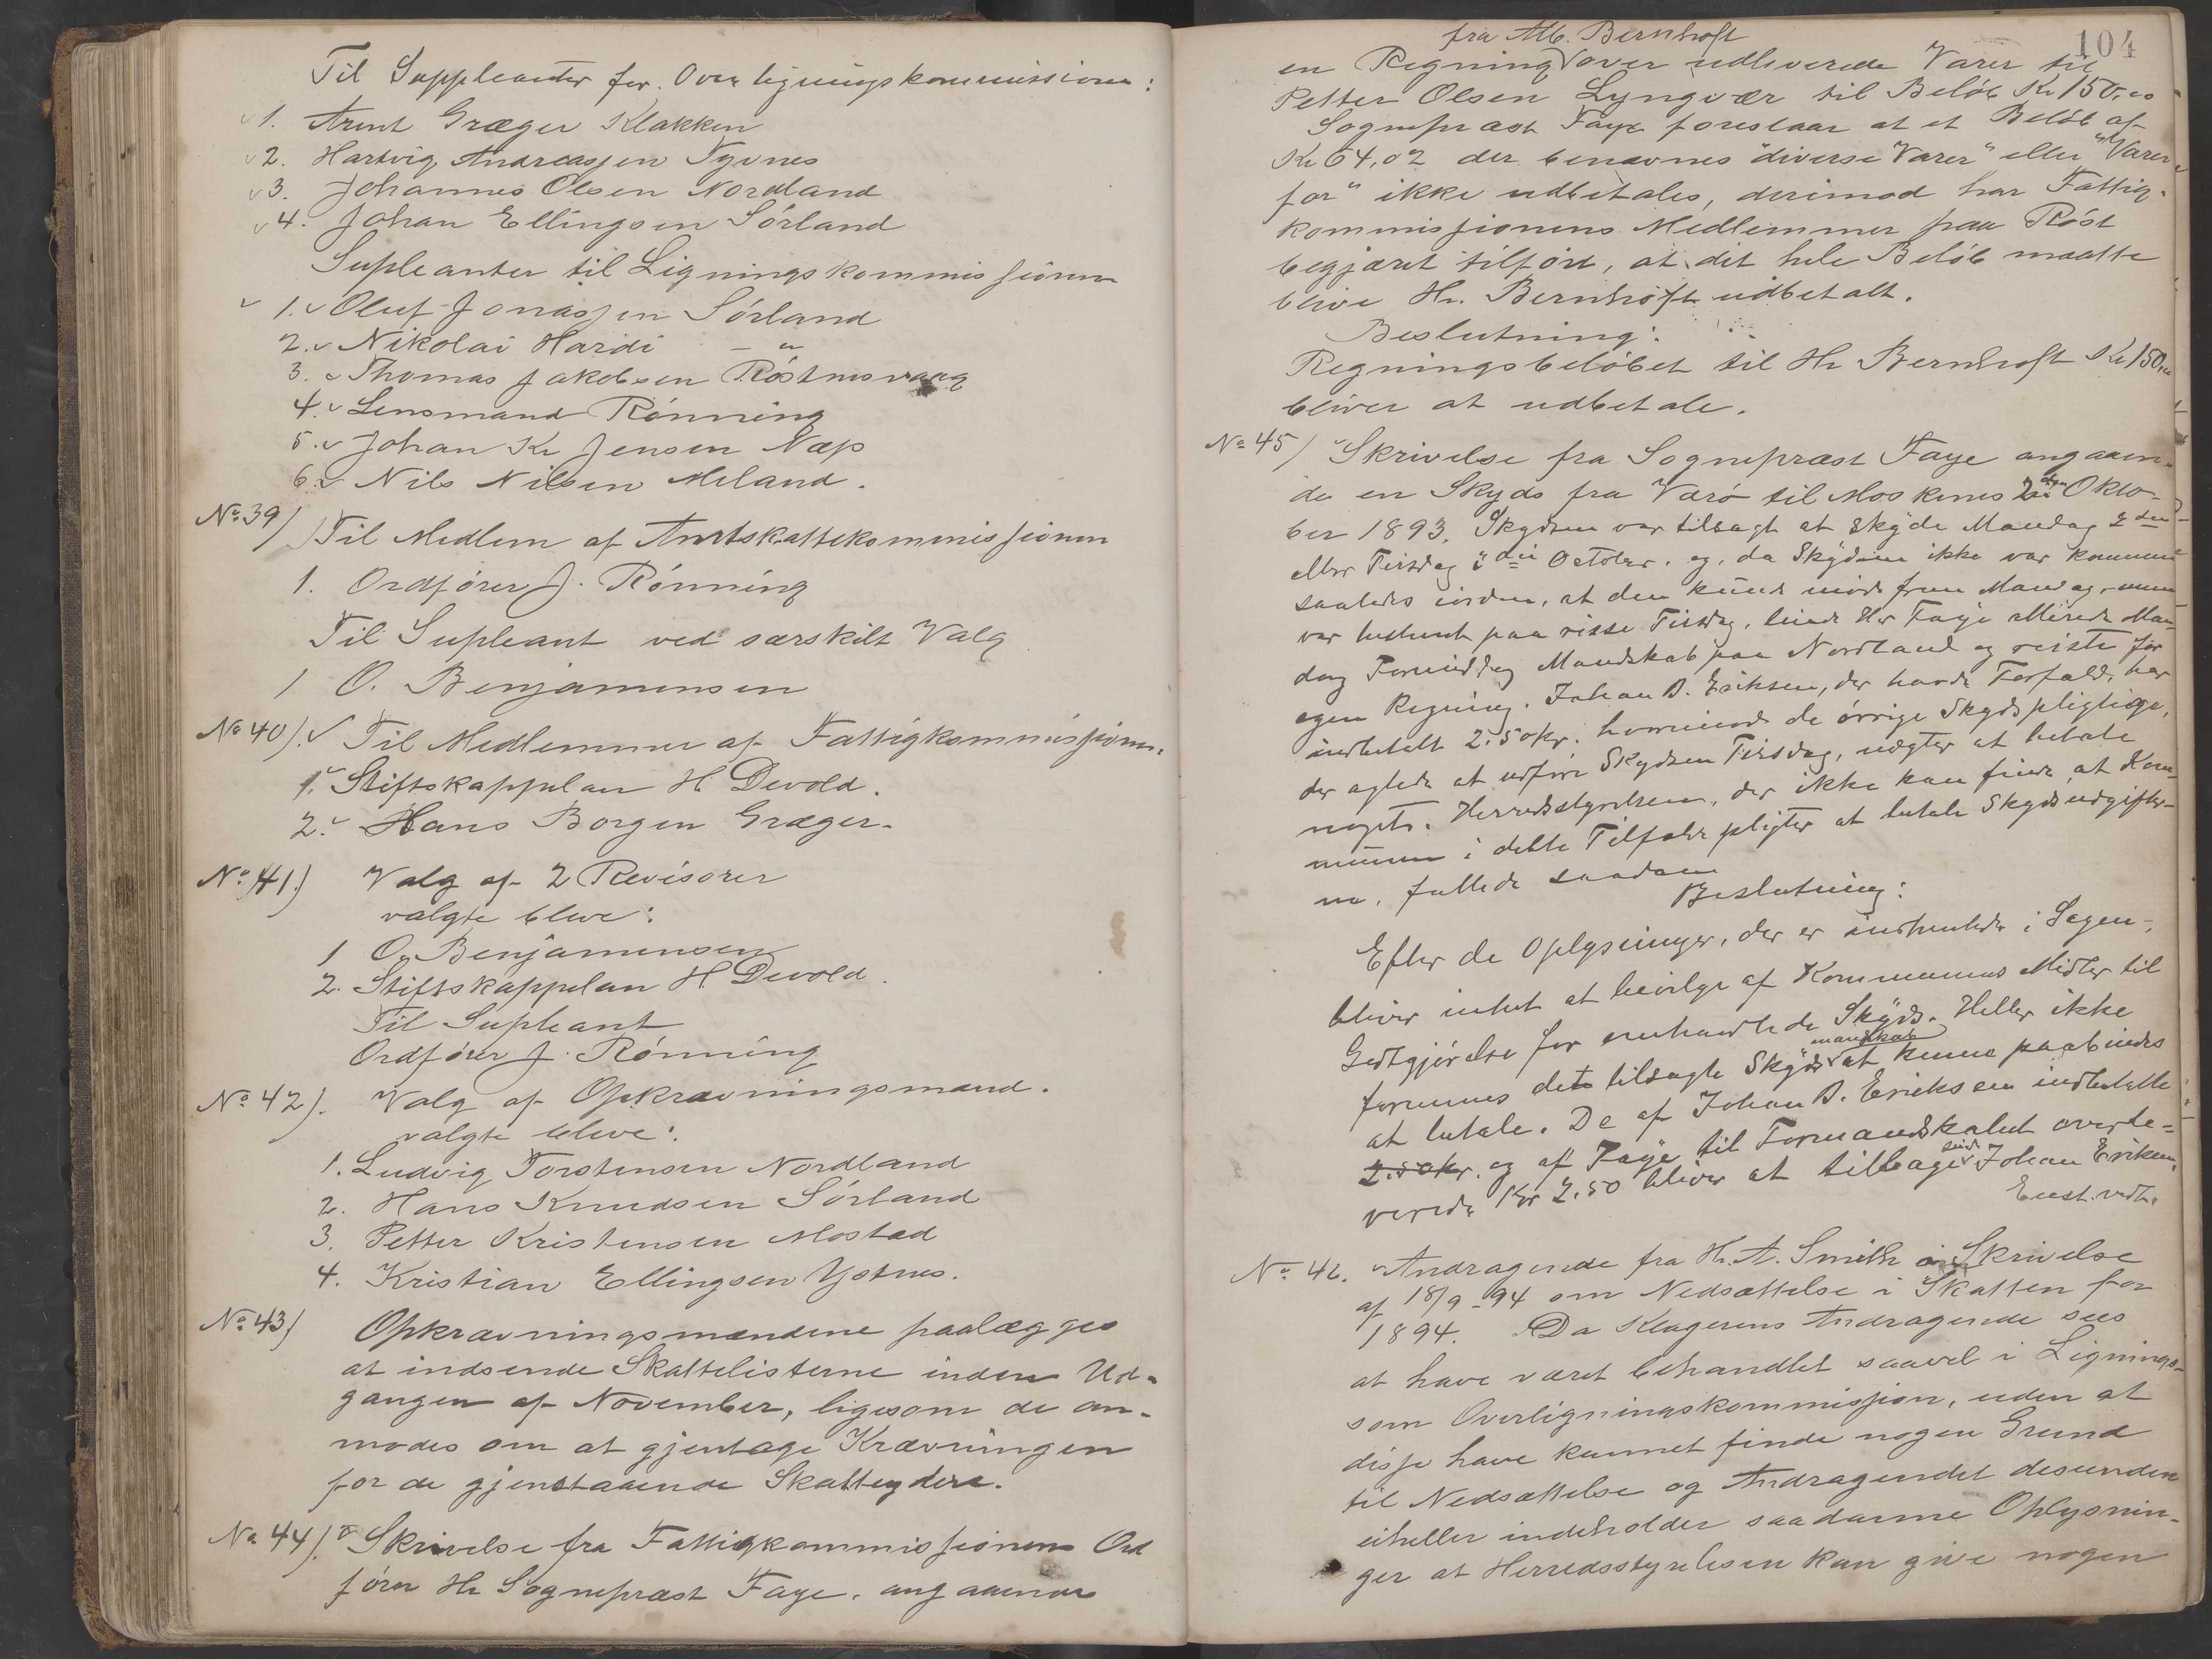 Til Suppleanter for Overligningskommissionen:
1. Arent Græger Klakken
2. Hartvig Andreassen Nyvnes
3. Johannes Olsen Nordland
4. Johan Ellingsen Sörland
Supleanter til Ligningskommissionen
1. Oluf Jonassen Sörland
2. Nikolai Hardi — " —
3. Thomas Jakobsen Röstnesvaag
4. Lensmand Rönning
5. Johan Kr Jensen Næss
6. Nils Nilsen Meland.
No 39/ Til Medlem af Amtskattekommissionen
1. Ordförer J. Rönning
Til Supleant ved særskilt Valg
1 O. Benjaminsen
No 40). Til Medlemmer af Fattigkommissionen.
1. Stiftskappelan H Devold.
2. Hans Borgen Græger.
No 41.) Valg af 2 Revisorer
valgte bleve:
1 O. Benjamensen
2. Stiftskappelan H Devold.
Til Supleant
Ordförer J. Rönning
No 42). Valg af Opkrævningsmænd.
valgte bleve:
1. Ludvig Torstensen Nordland
2. Hans Knudsen Sörland
3. Petter Kristensen Mostad
4. Kristian Ellingsen Ystnes.
No 43/ Opkrævningsmændene paalægges
at indsende Skattelisterne inden Ud-
gangen af November, ligesom de an-
modes om at gjentage Krævningen
for de gjenstaaende Skatteydere.
No 44). Skrivelse fra Fattigkommissionens Ord
förer Hr Sogneprest Faye, angaaende
104
fra Alb. Bernhoft
en Regning over udleverede Varer til
Petter Olsen Lyngvær til Belöb Kr 150,00
Sogneprest Faye foreslaar at et Belöb af
Kr 64,02 der benævnes "diverse Varer" eller "Varer
for" ikke udbetales, derimod har Fattig-
kommissionens Medlemmer paa Röst
begjæret tilfört, at det hele Belöb maatte
blive Hr. Bernhöft udbetalt.
Beslutning:
Regningsbelöbet til Hr Bernhoft Kr 150,00
bliver at udbetale.
No 45/ Skrivelse fra Sogneprest Faye angaaen-
de en Skyds fra Værö til Moskenes 2den Okto-
ber 1893. Skydsen var tilsagt at skyde Mandag 2den
eller Tirsdag 3die October. og, da Skydsen ikke var kommen
saaledes iorden, at den kunde möde frem Mandag, men
var bestemt paa reise Tirsdag, leiede Hr Faye allerede Man-
dag Formiddag Mandskab paa Nordland og reiste for
egen Regning. Johan B. Eriksen, der havde Forfald, har
indbetalt 2.50kr. hvorimod de övrige Skydspligtige,
der agtede at udföre Skydsen Tirsdag, nægter at betale
noget. Herredsstyrelsen, der ikke kan finde at Kom-
munen i dette Tilfælde pligter at betale Skydsudgifter-
ne, fattede saadan
Beslutning:
Efter de Oplysninger, der er indhentede i Sagen,
bliver intet at bevilge af Kommunens Midler til
Godtgjörelse for omhandlede Skyds. Heller ikke
formenes det tilsagte Skydsmandskab at kunne paabindes
at betale. De af Johan B. Eriksen indbetalte
2.50kr. og af Faye til Formandskabet overle-
verede Kr 2.50 bliver at tilbagesende Johan Eriksen.
Enst. vedt.
No 46. Andragende fra Hr. A. Smith i Skrivelse
af 18/9-94 om Nedsættelse i Skatten for
1894. Da Klagerens Andragende sees
at have været behandlet saavel i Lignings-
som Overligningskommission, uden at
disse have kunnet finde nogen Grund
til Nedsættelse og Andragendet desuden
eiheller indeholder saadanne Oplysnin-
ger at Herredsstyrelsen kan give nogen